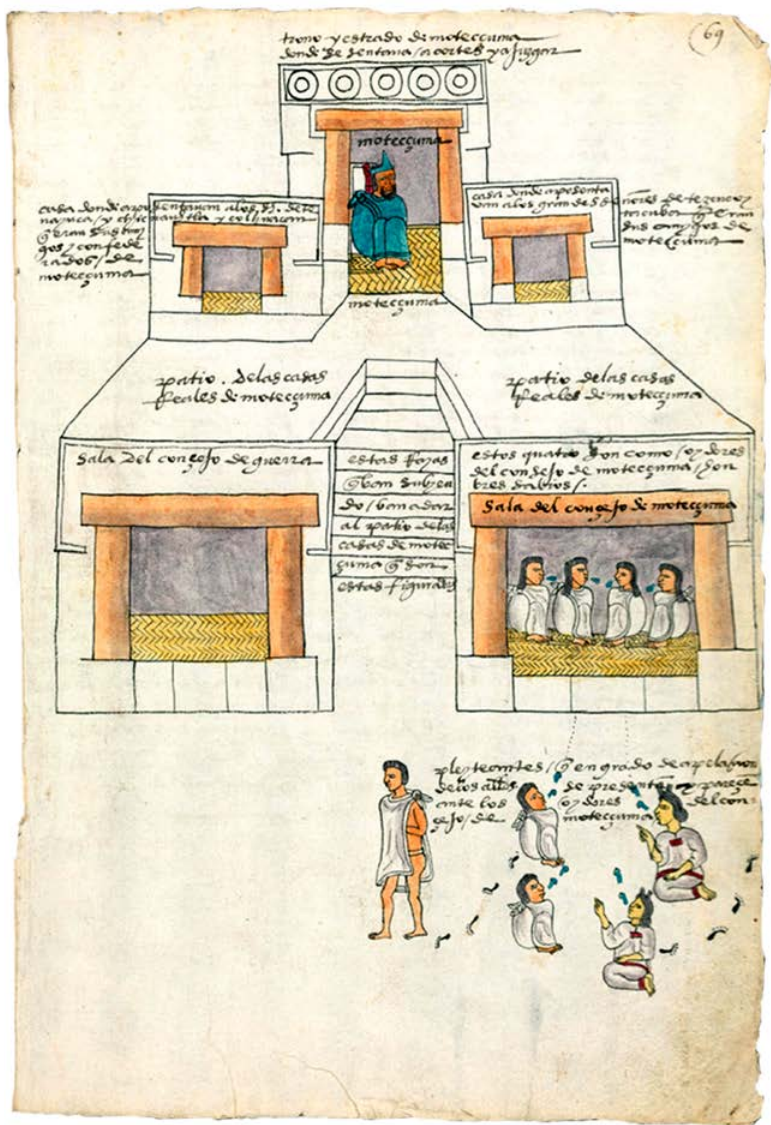 69
trono y estrado de motecçuma
donde se sentava / a cortes y a juzgar
motecçuma
casa donde aposentavan a los s.s. de te
nayuca / y chicnauhtla y colhuacan
q̄ eran sus ami
gos / y confede
rados / de
motecçuma
casa donde aposenta
van a los grandes señores de tezcuco y
tacuba q̄ eran
sus amygos de
motecçuma
motecçuma
patio . de las casas
Reales de motecçuma
patio de las casas
Reales de motecçuma
sala del consejo de guerra
estas Rayas
q̄ van subyen
do / van a dar
al patio de las
casas de motec
çuma q̄ son
estas figuradas
estos quatro son como / oydores
del consejo de motecçuma / hon
bres sabios /.
sala del consejo de motecçuma
pleyteantes / q̄ en grado de apelaçion
de los alldes se presentan y pareçe
ante los oydores del con
sejo / de motecçuma